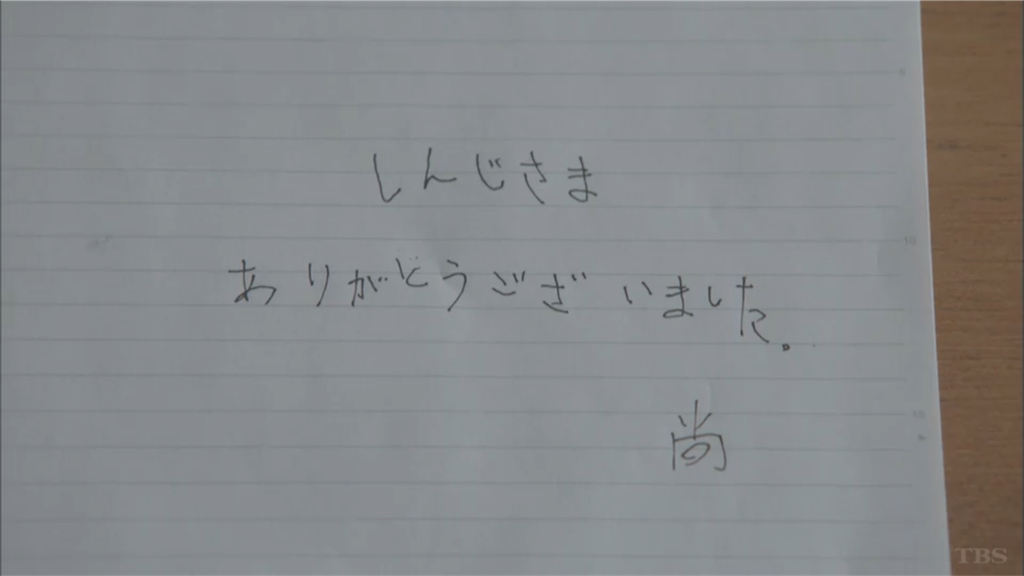 しんじさま
ありがとうございました。
尚
TBS